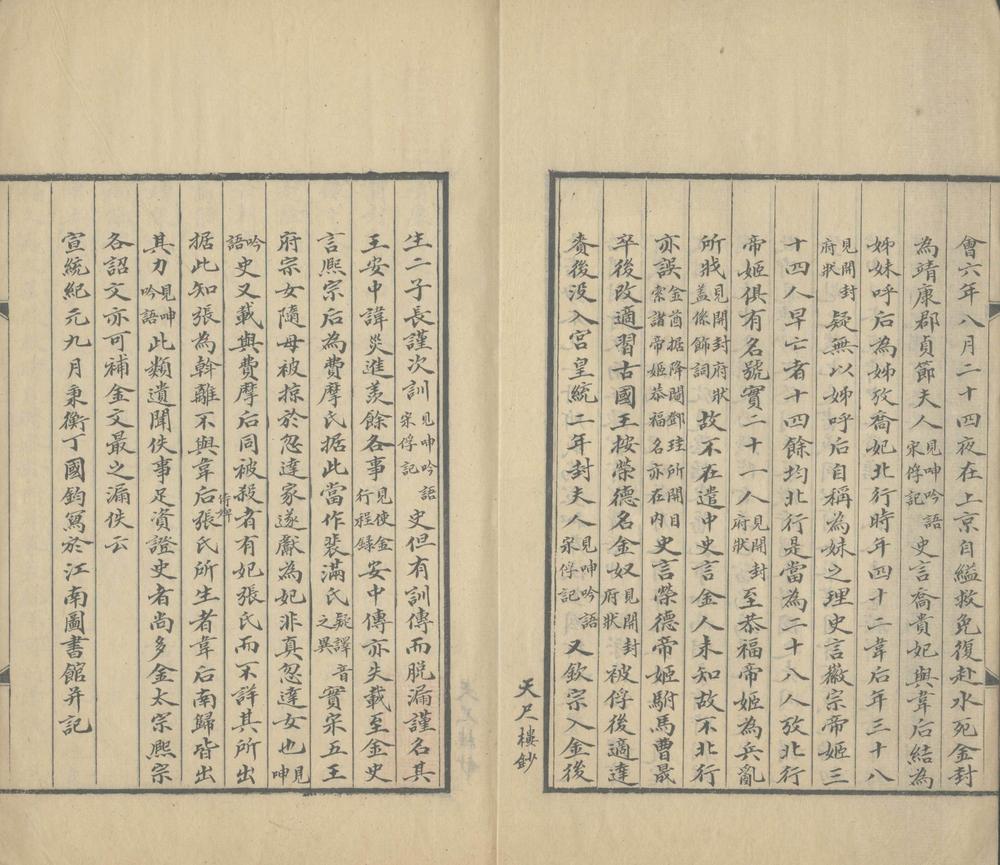 會六年八月二十四夜在上京自縊救免復赴水死金封
為靖康郡貞節夫人見呻吟語宋俘記史言喬貴妃與韋后結為
姊妹呼后為姊攷喬妃北行時年四十二韋后年三十八
見開封府狀疑無以姊呼后自稱為妹之理史言徽宗帝姬三
十四人早亡者十四餘均北行是當為二十八人攷北行
帝姬俱有名號實二十一人見開封府狀至恭福帝姬為兵亂
所戕見開封府狀蓋係飾詞故不在遣中史言金人未知故不北行
亦誤金酋据降閹鄧珪所開目索諸帝姬恭福名亦在內史言榮德帝姬駙馬曹晟
卒後改適習古國王按榮德名金奴見開封府狀被俘後適達
賚後没入宮皇統二年封夫人見呻吟語宋俘記又欽宗入金後
天尺樓鈔
生二子長謹次訓見呻吟語宋俘記史但有訓傳而脫漏謹名其
王安中諱災進羡餘各事見使金行程錄安中傳亦失載至金史
言熙宗后為費摩氏据此當作裴滿氏疑譯音之異實宋五王
府宗女隨母被掠於忽達家遂獻為妃非真忽達女也見呻
吟語史又載與費摩后同被殺者有妃張氏而不詳其所出
据此知張為斡離不與韋后侍婢張氏所生者韋后南歸皆出
其力見呻吟語此類遺聞佚事足資證史者尚多金太宗熙宗
各詔文亦可補金文最之漏佚云
宣統紀元九月秉衡丁國鈞寫於江南圖書館并記